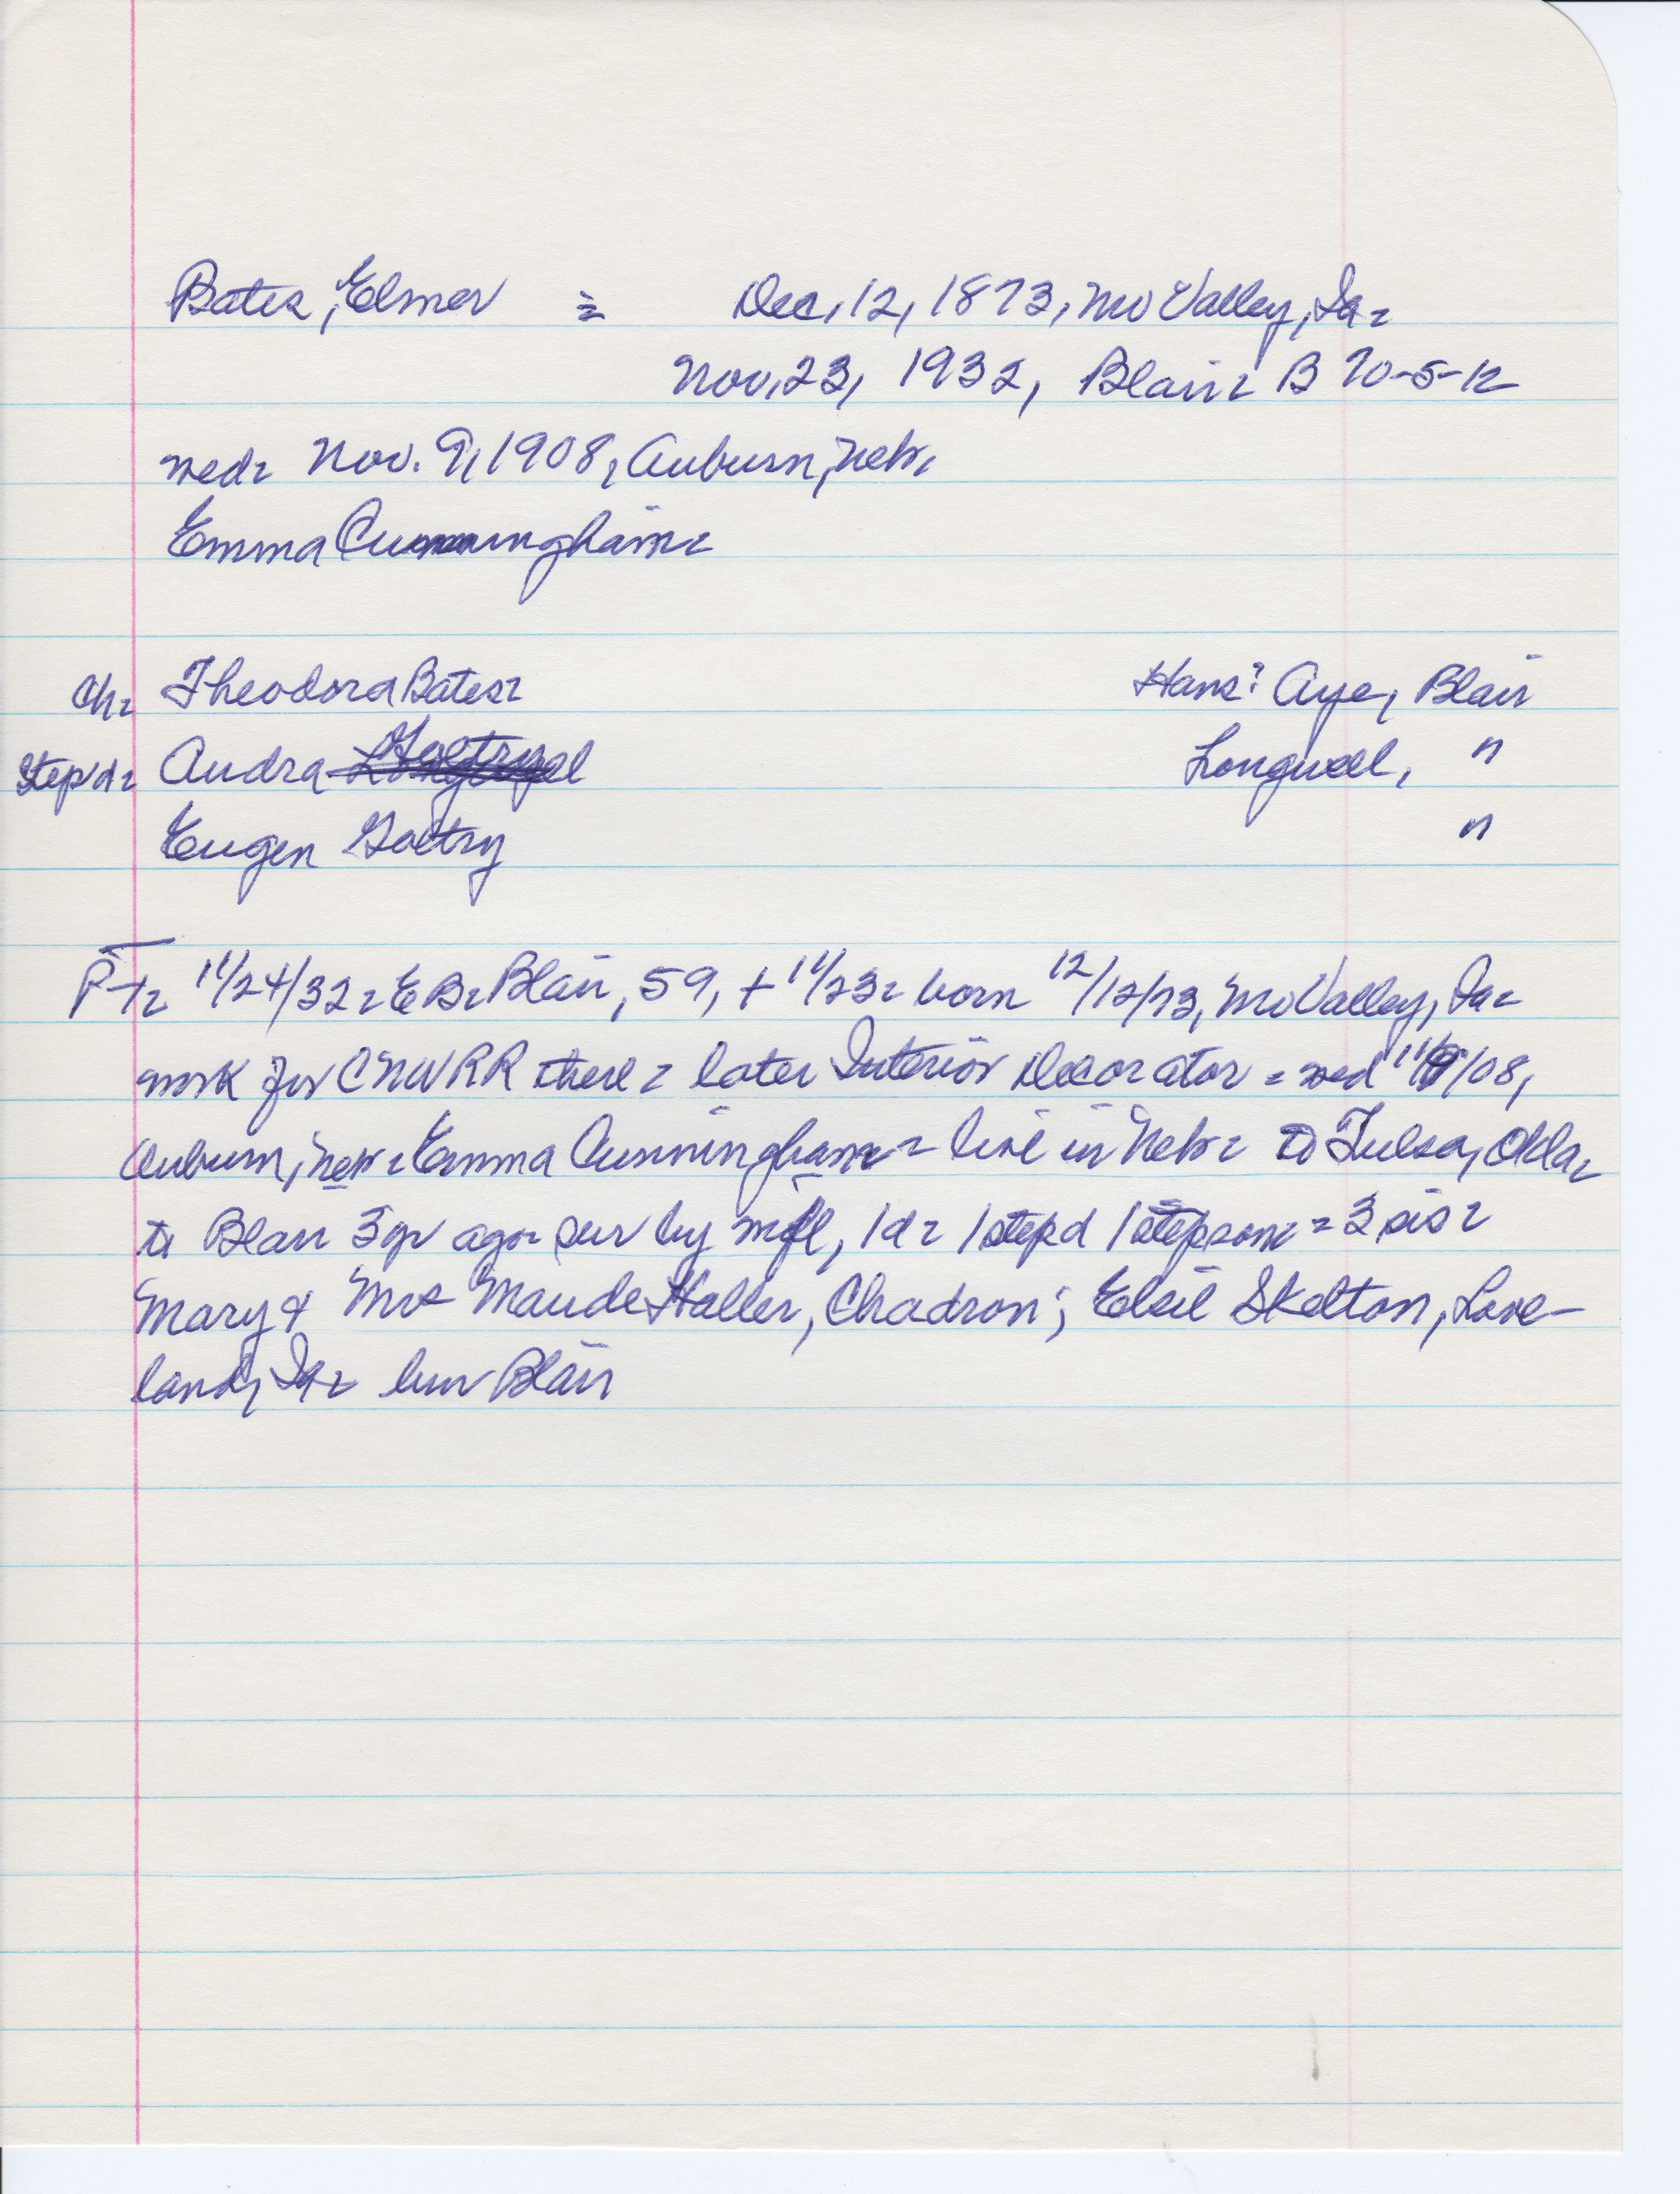 Bates, Elmer = Dec, 12, 1873, Mo Valley, Ia =
Nov, 23, 1932, Blair = B 70-5-12
wed = Nov. 9, 1908, Auburn, Nebr,
Emma Cunningham =
Ch = Theodora Bates = Hans? Aye, Blair
Step d = Audra Longwell, "
Eugen Goltry "
PT = 11/24/32 = E B = Blair, 59, + 11/23 = born 12/12/73, Mo Valley, Ia =
work for CNWRR there = later Interior Decorator = wed 11/9/08,
Auburn, Neb = Emma Cunningham = live in Nebr = to Tulsa, Okla =
to Blair 3 yr ago = sur by wife, 1 d = 1 step d 1 stepson = 3 sis =
Mary & Mrs Maude Haller, Chadron; Elsie Skelton, Love-
land, Ia = bur Blair